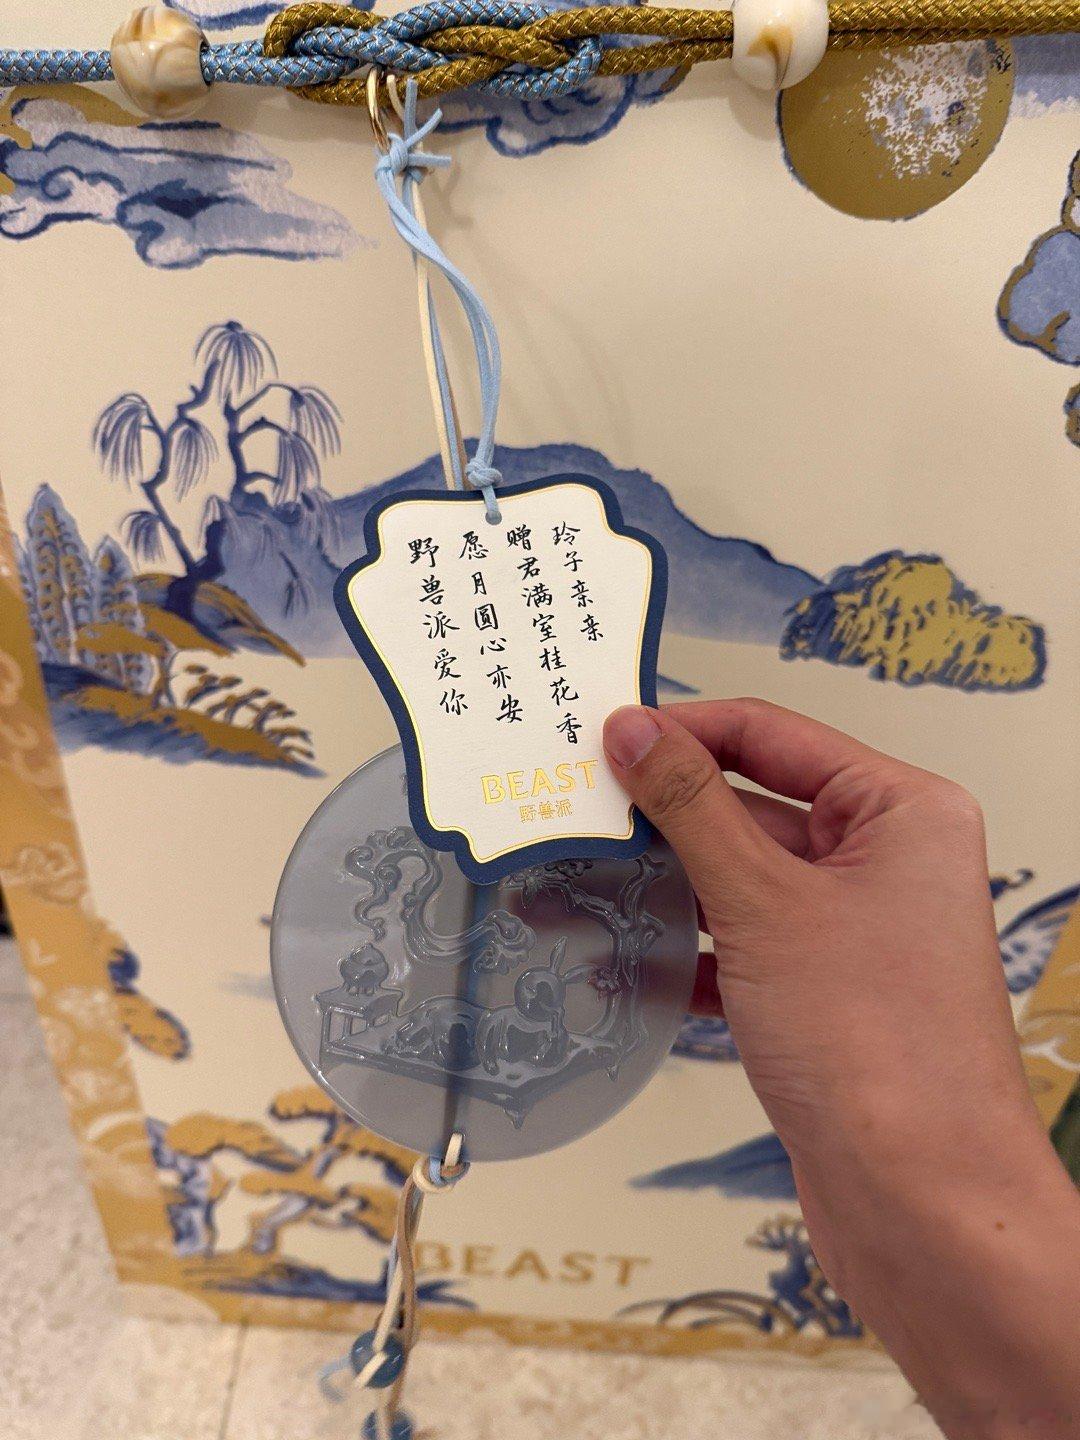 玲子亲亲
赠君满室桂花香
愿月圆心亦安
野兽派爱你
BEAST
野兽派
BEAST